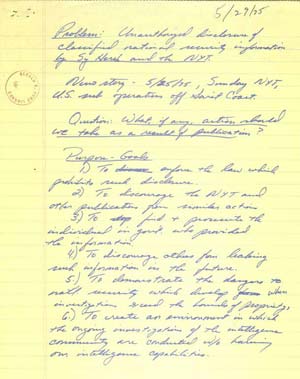 5/29/75
Problem: Unauthorized disclosure of
classified national security information
by Sy Hersh and the NYT.
News story - 5/25/75, Sunday NYT,
U.S. sub operations off Soviet Coast.
Question: What, if any, action should
we take as a result of publication?
Purpose - Goals
1) To enforce the law which
prohibits such disclosure.
2) To discourage the NYT and
other publications from similar action
3) To find & prosecute the
individual in govt. who provided
the information.
4) To discourage others from leaking
such information in the future.
5) To demonstrate the dangers to
natl security which develop when
investigations exceed the bounds of propriety.
6) To create an environment in which
the ongoing investigation of the intelligence
community are conducted w/o harming
our intelligence capabilities.